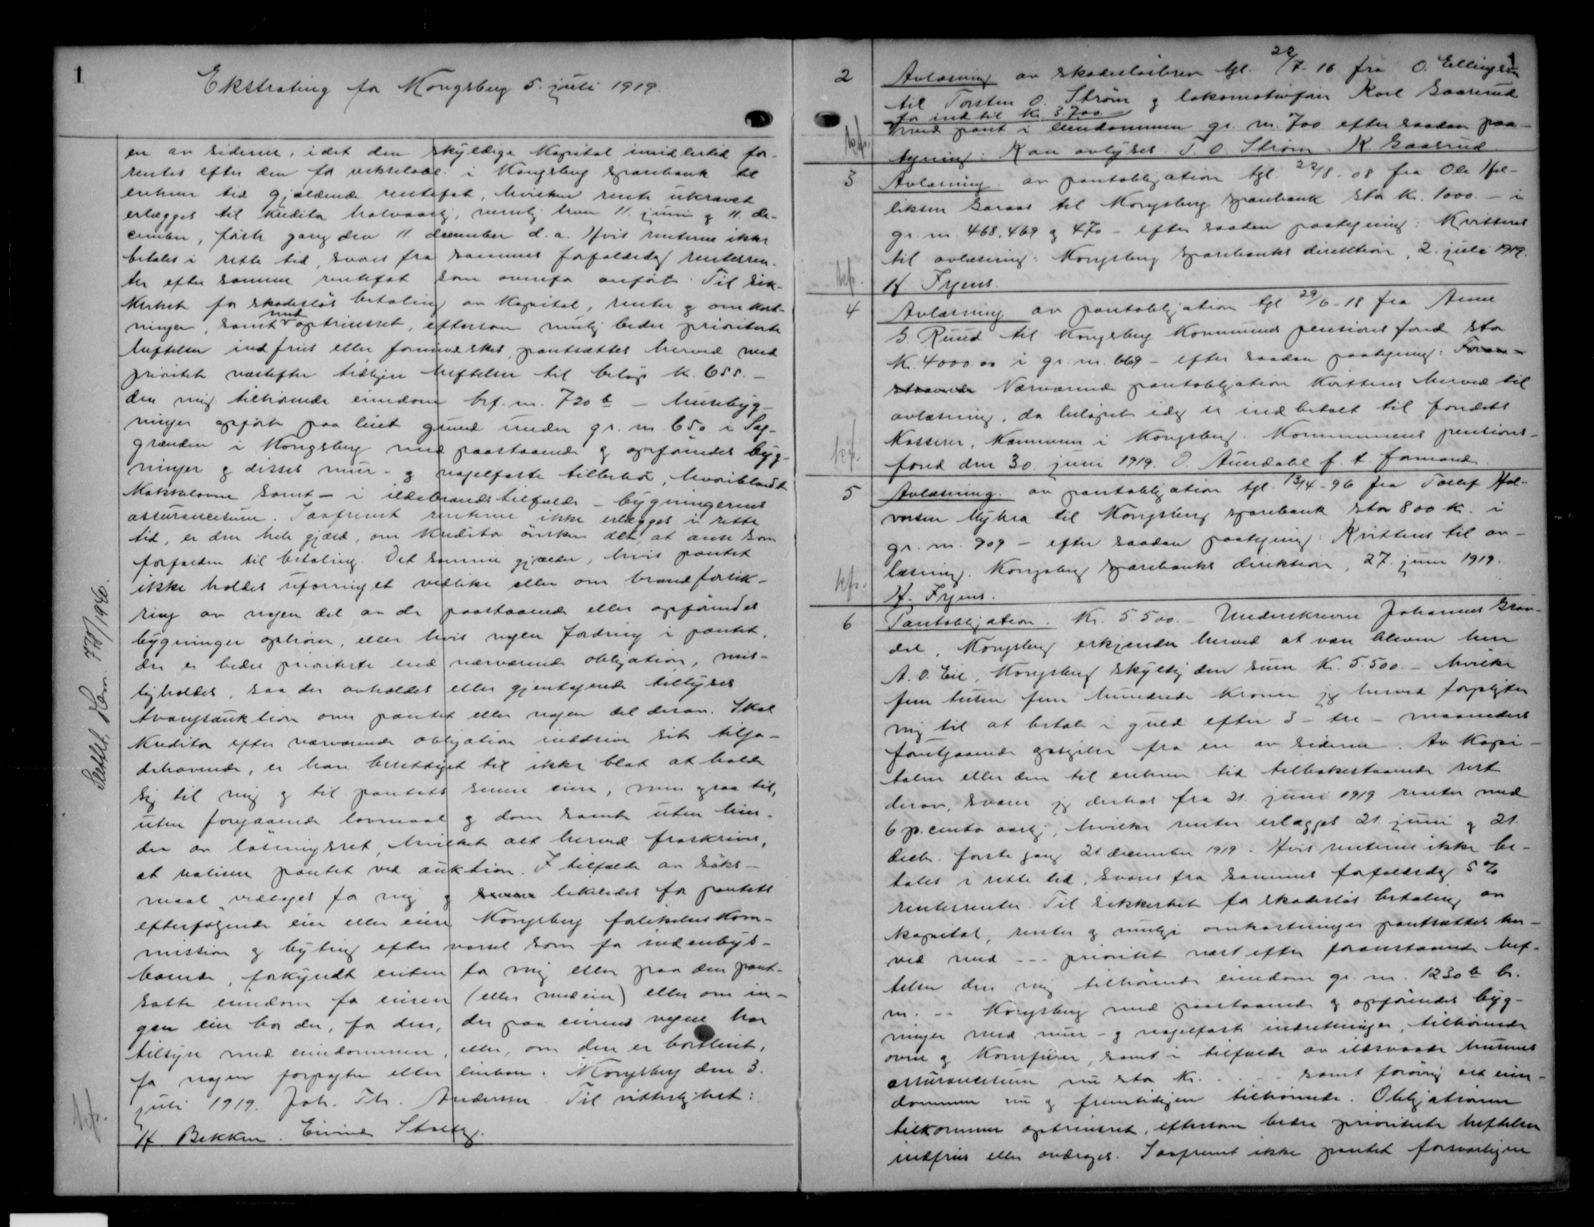 1
Ekstrating for Kongsberg 5. juli 1919.
en av siderne, idet den skyldige kapital imidlertid for-
rentes efter den for vekselobl. i Kongsberg sparebank til
enhver tid gjældende rentefot, hvilken rente ukrævet
erlægges til kreditor halvaarlig, nemlig hver 11. juni og 11. de-
cember, første gang den 11. december d.a. Hvis renterne ikke
betales i rette tid, svares fra sammes forfaldsdag renters ren-
te efter samme rentefot som ovenfor anført. Til sik-
kerhet for skadesløs betaling av kapital, renter og omkost-
ninger, samt med optrinsret, eftersom mulig bedre prioriterte
heftelser indfries eller formindskes, pantsættes herved med
prioritet næstefter tidligere heftelser til beløp kr. 655.-
den mig tilhørende eiendom brf. nr. 720 b - husebyg-
ninger opført paa leiet grund under gr. nr. 650 i Sag-
grenden i Kongsberg med paastaaende og opførendes byg-
ninger og disses mur- og nagelfaste tilbehør, hvoriblandt
kakkelovne samt - i ildebrandstilfælde - bygningernes
assurancesum. Saafremt renterne ikke erlægges i rette
tid, er den hele gjæld, om kreditor ønsker det, at anse som
forfalden til betaling. Det samme gjælder, hvis pantet
ikke holdes uforringet vedlike eller om brandforsik-
ring av nogen del av de paastaaende eller opførendes
bygninger ophører, eller hvis nogen fordring i pantet,
der er bedre prioriterte end nærværende obligation, mis-
ligholdes, saa der avholdes eller gjentagende tillyses
tvangsauktion over pantet eller nogen del derav. Skal
kreditor efter nærværende obligation inddrive sit tilgo-
dehavende, er han berettiget til ikke blot at holde
sig til mig og til pantets senere eier, men ogsaa til,
uten foregaaende lovmaal og dom samt uten hin-
der av løsningsret, hvilket alt herved fraskrives,
at realisere pantet ved auktion. I tilfælde av søks-
maal vedtages for mig og likeledes for pantets
efterfølgende eier eller eiere Kongsberg forlikelseskom-
mission og byting efter varsel som for indenbys-
boende, forkyndt enten for mig eller paa den pant-
satte eiendom for eieren (eller medeier) eller om in-
gen eier bor der, for den, der paa eierens vegne har
tilsyn med eiendommen, eller, om den er bortleiet,
for nogen forpagter eller leieboer. Kongsberg den 3.
juli 1919. Joh. Th. Andersen. Til vitterlighet:
H Bekken. Eivind Stoltz.
Slettet, Dom. 1946.
kfr.
1
2 Avlæsning av skadesløsbrev tgl. 22/7-16 fra O. Ellingsen
til Torsten O. Strøm og lokomotivfører Karl Gaasrud
for indtil kr. 3.700
hvved pant i eiendommen gr. nr. 700 efter saadan paa-
tegning: Kan avlyses. T. O. Strøm. K Gaasrud.
kfr.
3 Avlæsning av pantobligation tgl. 22/8-08 fra Ole Hel-
liksen Garaas til Kongsberg sparebank stor kr. 1000.- i
gr. nr. 468, 469 og 470 - efter saadan paategning: Kvitteres
til avlæsning: Kongsberg sparebanks direktion, 2. juli 1919.
kfr. H Fryens.
4 Avlæsning av pantobligation tgl. 29/6-18 fra Anne
G. Ruud til Kongsberg kommunes pensionsfond stor
kr. 4000.00 i gr. nr. 669 - efter saadan paategning:
Nærværende pantobligation kvitteres herved til
avlæsning, da beløpet idag er indbetalt til fondets
kasserer, Kæmneren i Kongsberg. Kommunens pensions-
kfr. fond den 30. juni 1919. O. Aurdahl f. t. formand.
5 Avlæsning av pantobligation tgl. 13/4-96 fra Tollef Hal-
vorsen Myhra til Kongsberg sparebank stor 800 kr. i
gr. nr. 909 - efter saadan paategning: Kvitteres til av-
læsning. Kongsberg sparebanks direktion, 27. juni 1919.
kfr. H. Fryens.
6 Pantobligation. Kr. 5500.- Underskrevne Johannes Grøn-
dal, Kongsberg erkjender herved at være bleven herr
A. O. Eie, Kongsberg skyldig den sum kr. 5.500.- hvilke
fem tusen fem hundrede kroner jeg herved forpligter
mig til at betale i guld efter 3 - tre - maaneders
forutgaaende opsigelse fra en av siderne. Av kapi-
talen eller den til enhver tid tilbakestaaende rest
derav, svarer jeg derhos fra 21. juni 1919 renter med
6 p.cento aarlig, hvilke renter erlægges 21. juni og 21.
decbr. første gang 21 december 1919. Hvis renterne ikke be-
tales i rette tid, svares fra sammes forfaldsdag 5 %
rentersrenter. Til sikkerhet for skadesløs betaling av
kapital, renter og mulige omkostninger pantsættes her-
ved med --- prioritet næst efter foranstaaende hef-
telser den mig tilhørende eiendom gr. nr. 1230 b br.
nr. -- Kongsberg med paastaaende og opførendes byg-
ninger med mur- og nagelfast indretninger, tilhørende
ovne og komfurer, samt i tilfælde av ildsvaade husenes
assurancesum nu stor kr. -- samt forøvrig alt eien-
dommen nu og fremtidigen tilhørende. Obligationen
tilkommer optrinsret, eftersom bedre prioriterte heftelser
indfries eller avdrages. Saafremt ikke pantet forsvarligen